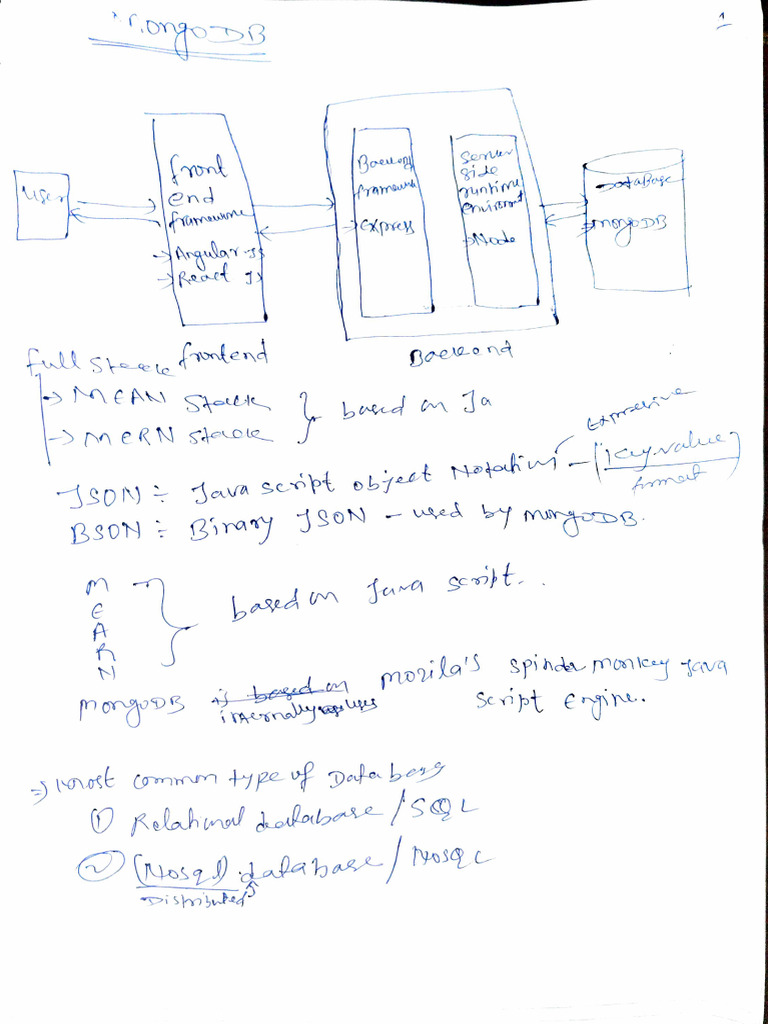 MongoDB
1
User
front
end
framework
→ Angular JS
→ React JS
frontend
Backend
framework
→ Express
Server
side
runtime
→ Node
Backend
DataBase
→ MongoDB
full Stack
→ MEAN Stack
→ MERN Stack
} based on Ja
JSON :- Java script object Notation – (key-value)
format
BSON :- Binary JSON – used by MongoDB.
M
E
A
R
N
} based on Java script..
MongoDB is based on Mozila's spider monkey Java
internally uses script Engine.
⇒ Most common type of Databases
① Relational database / SQL
② (Nosql) database / NoSQL
Distributed